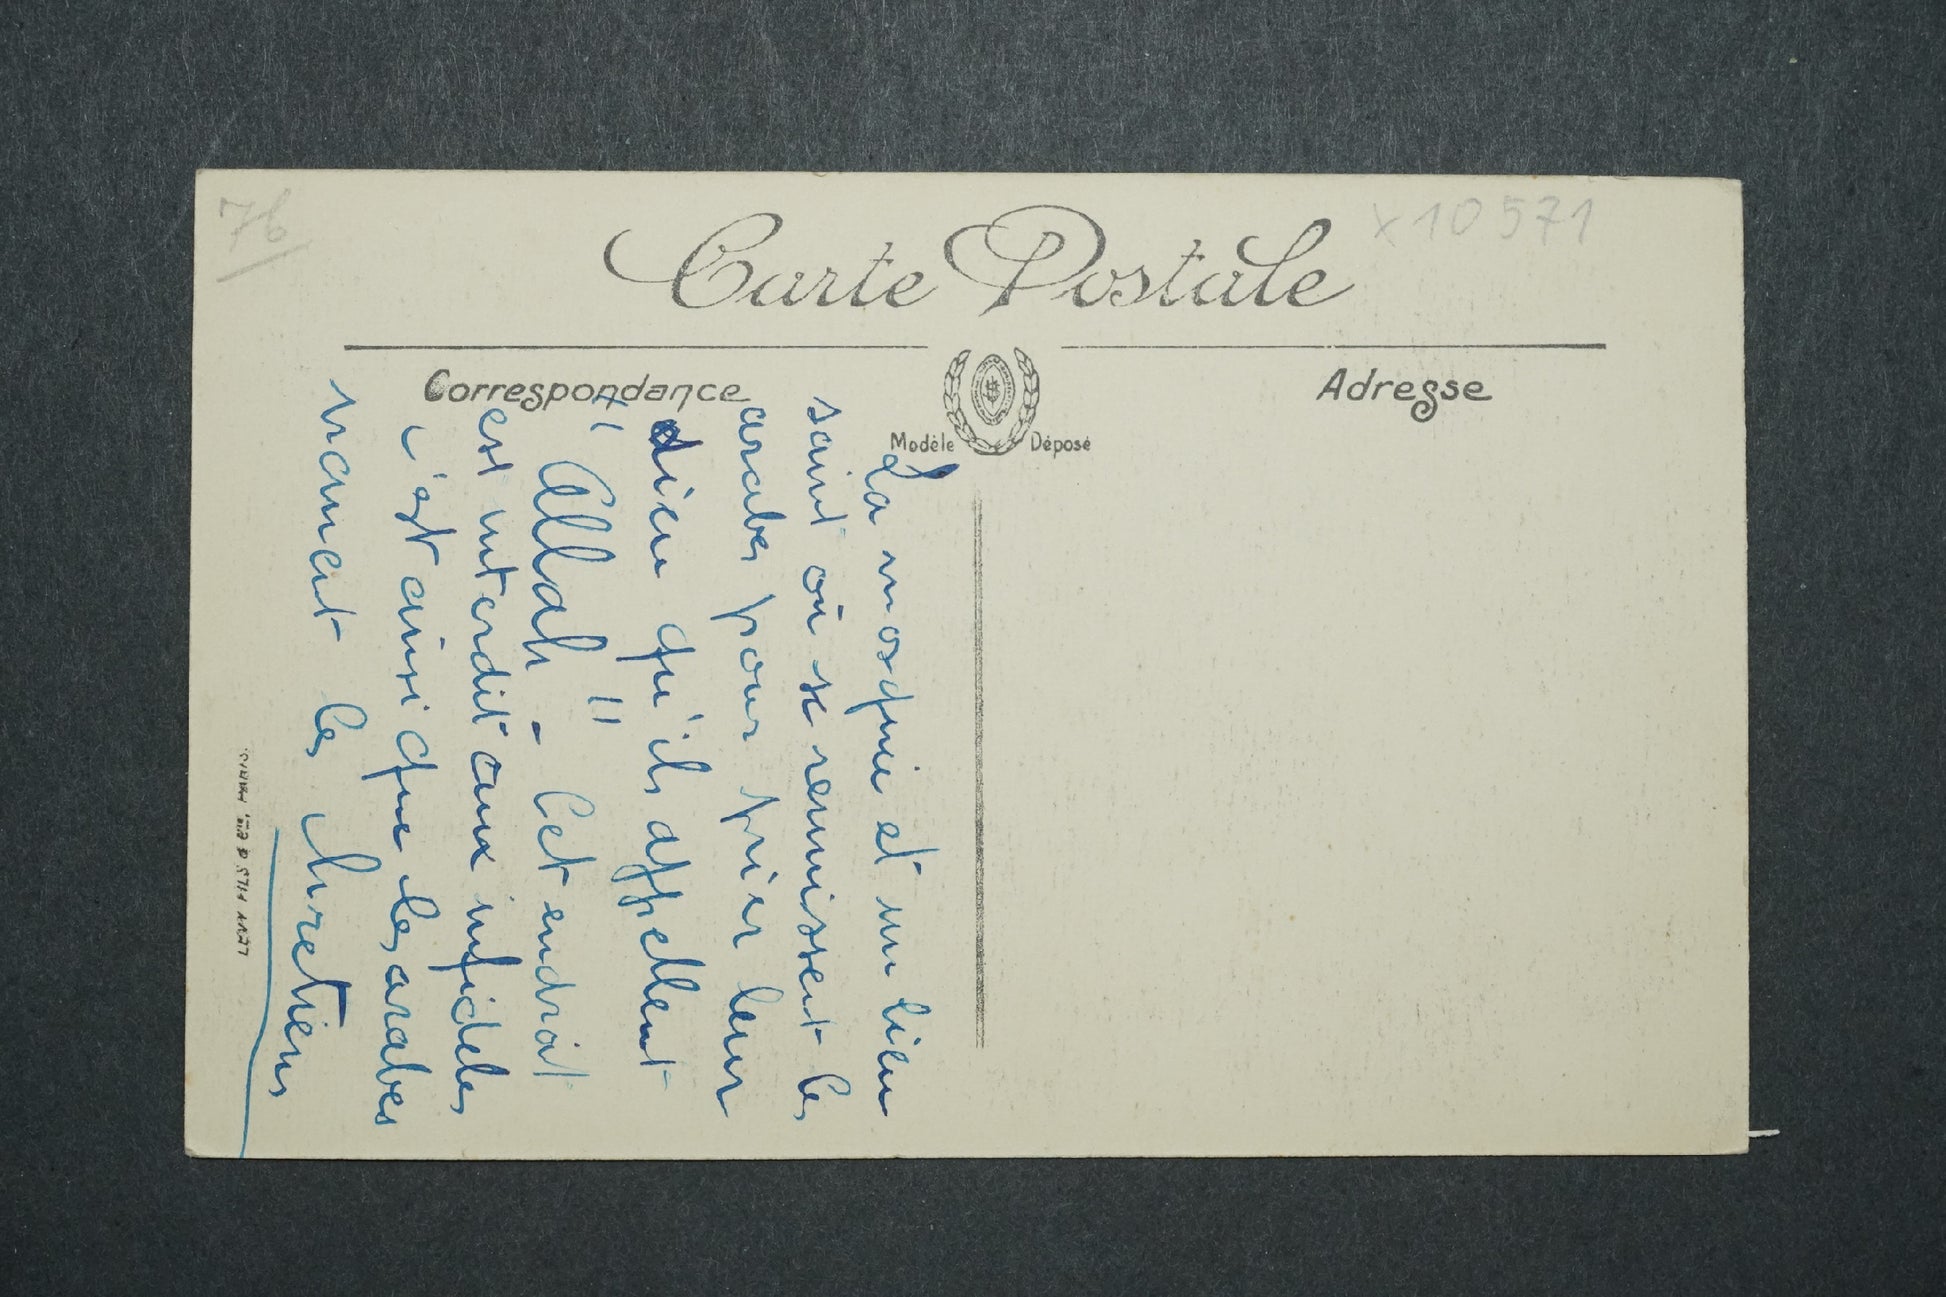 76
x10571
Carte Postale
Correspondance
Adresse
Modèle Déposé
La mosquée et un lieu
saint où se reunissent les
arabes pour prier leur
dieu qu'ils appellent
" Allah " - Cet endroit
est interdit aux infideles
c'est ainsi que les arabes
nomment les chretiens
LEVY FILS & Cie, PARIS.